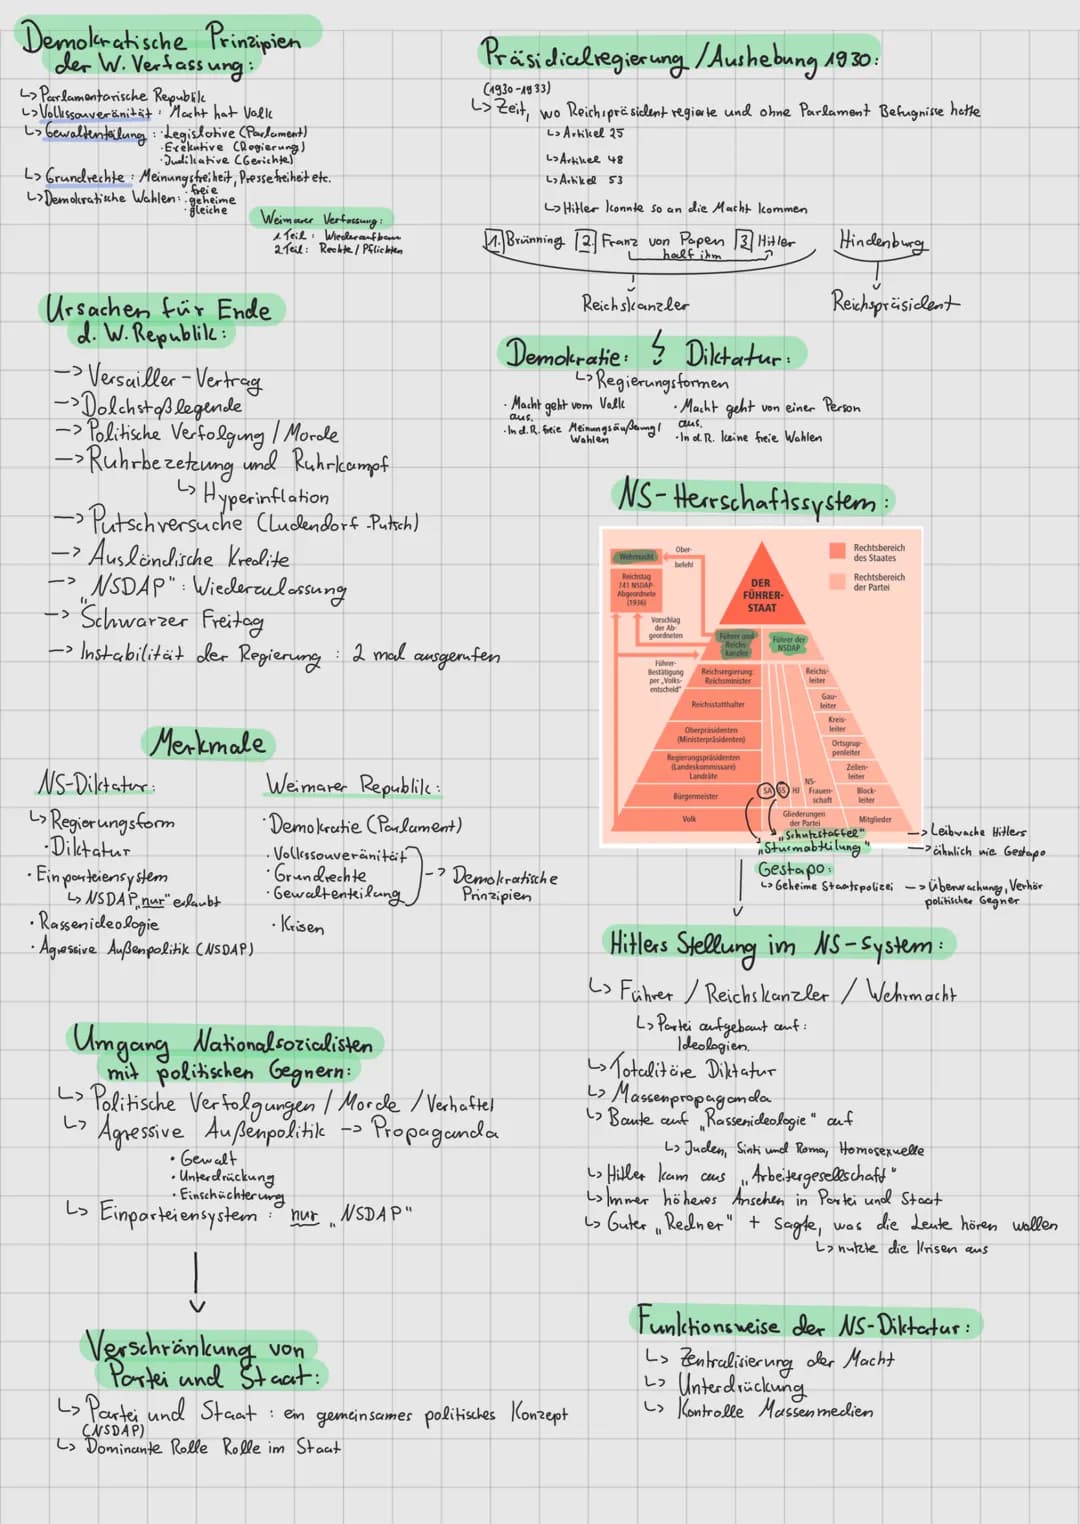 Demokratische Prinzipien
der W. Verfassung:
↳ Parlamentarische Republik
↳ Volkssouveränität: Macht hat Volk
↳ Gewaltenteilung: · Legislative (Parlament)
· Exekutive (Regierung)
· Judikative (Gerichte)
↳ Grundrechte: Meinungsfreiheit, Pressefreiheit etc.
↳ Demokratische Wahlen: · freie
· geheime
· gleiche
Weimarer Verfassung:
1. Teil: Wiederaufbau
2. Teil: Rechte / Pflichten
Ursachen für Ende
d. W. Republik:
-> Versailler-Vertrag
-> Dolchstoßlegende
-> Politische Verfolgung / Morde
-> Ruhrbezetzung und Ruhrkampf
↳ Hyperinflation
-> Putschversuche (Ludendorf-Putsch)
-> Ausländische Kredite
-> „NSDAP": Wiederzulassung
-> Schwarzer Freitag
-> Instabilität der Regierung: 2 mal ausgerufen
Merkmale
NS-Diktatur:
↳ Regierungsform
· Diktatur
· Einparteiensystem
↳ NSDAP „nur" erlaubt
· Rassenideologie
· Agressive Außenpolitik (NSDAP)
Weimarer Republik:
· Demokratie (Parlament)
· Volkssouveränität
· Grundrechte
· Gewaltenteilung
-> Demokratische
Prinzipien
· Krisen
Umgang Nationalsozialisten
mit politischen Gegnern:
↳ Politische Verfolgungen / Morde / Verhaftet
↳ Agressive Außenpolitik -> Propaganda
· Gewalt
· Unterdrückung
· Einschüchterung
↳ Einparteiensystem: nur „NSDAP"
Verschränkung von
Partei und Staat:
↳ Partei und Staat: ein gemeinsames politisches Konzept
(NSDAP)
↳ Dominante Rolle Rolle im Staat
Präsidialregierung / Aushebung 1930:
(1930-1933)
↳ Zeit, wo Reichspräsident regierte und ohne Parlament Befugnisse hatte
↳ Artikel 25
↳ Artikel 48
↳ Artikel 53
↳ Hitler konnte so an die Macht kommen
1. Brünning 2. Franz von Papen 3. Hitler
half ihm
Reichskanzler
Hindenburg
Reichspräsident
Demokratie: Diktatur:
↳ Regierungsformen
· Macht geht vom Volk
aus.
· In d. R. freie Meinungsäußerung/
Wahlen
· Macht geht von einer Person
aus.
· In d. R. keine freie Wahlen
NS-Herrschaftssystem:
Wehrmacht
Ober-
befehl
Reichstag
741 NSDAP-
Abgeordnete
(1936)
Vorschlag
der Ab-
geordneten
Führer-
Bestätigung
per „Volks-
entscheid"
DER
FÜHRER-
STAAT
Rechtsbereich
des Staates
Rechtsbereich
der Partei
Führer und
Reichs-
kanzler
Führer der
NSDAP
Reichsregierung:
Reichsminister
Reichsstatthalter
Oberpräsidenten
(Ministerpräsidenten)
Regierungspräsidenten
(Landeskommissare)
Landräte
Bürgermeister
Volk
Reichs-
leiter
Gau-
leiter
Kreis-
leiter
Ortsgrup-
penleiter
Zellen-
leiter
Block-
leiter
Mitglieder
SA SS HJ
NS-
Frauen-
schaft
Gliederungen
der Partei
„Schutzstaffel" -> Leibwache Hitlers
„Sturmabteilung" -> ähnlich wie Gestapo
Gestapo:
↳ Geheime Staatspolizei -> Überwachung, Verhör
politischer Gegner
Hitlers Stellung im NS-System:
↳ Führer / Reichskanzler / Wehrmacht
↳ Partei aufgebaut auf:
Ideologien.
↳ Totalitäre Diktatur
↳ Massenpropaganda
↳ Baute auf „Rassenideologie" auf
↳ Juden, Sinti und Roma, Homosexuelle
↳ Hitler kam aus „Arbeitergesellschaft"
↳ Immer höheres Ansehen in Partei und Staat
↳ Guter „Redner" + sagte, was die Leute hören wollen
↳ nutzte die Krisen aus
Funktionsweise der NS-Diktatur:
↳ Zentralisierung der Macht
↳ Unterdrückung
↳ Kontrolle Massenmedien